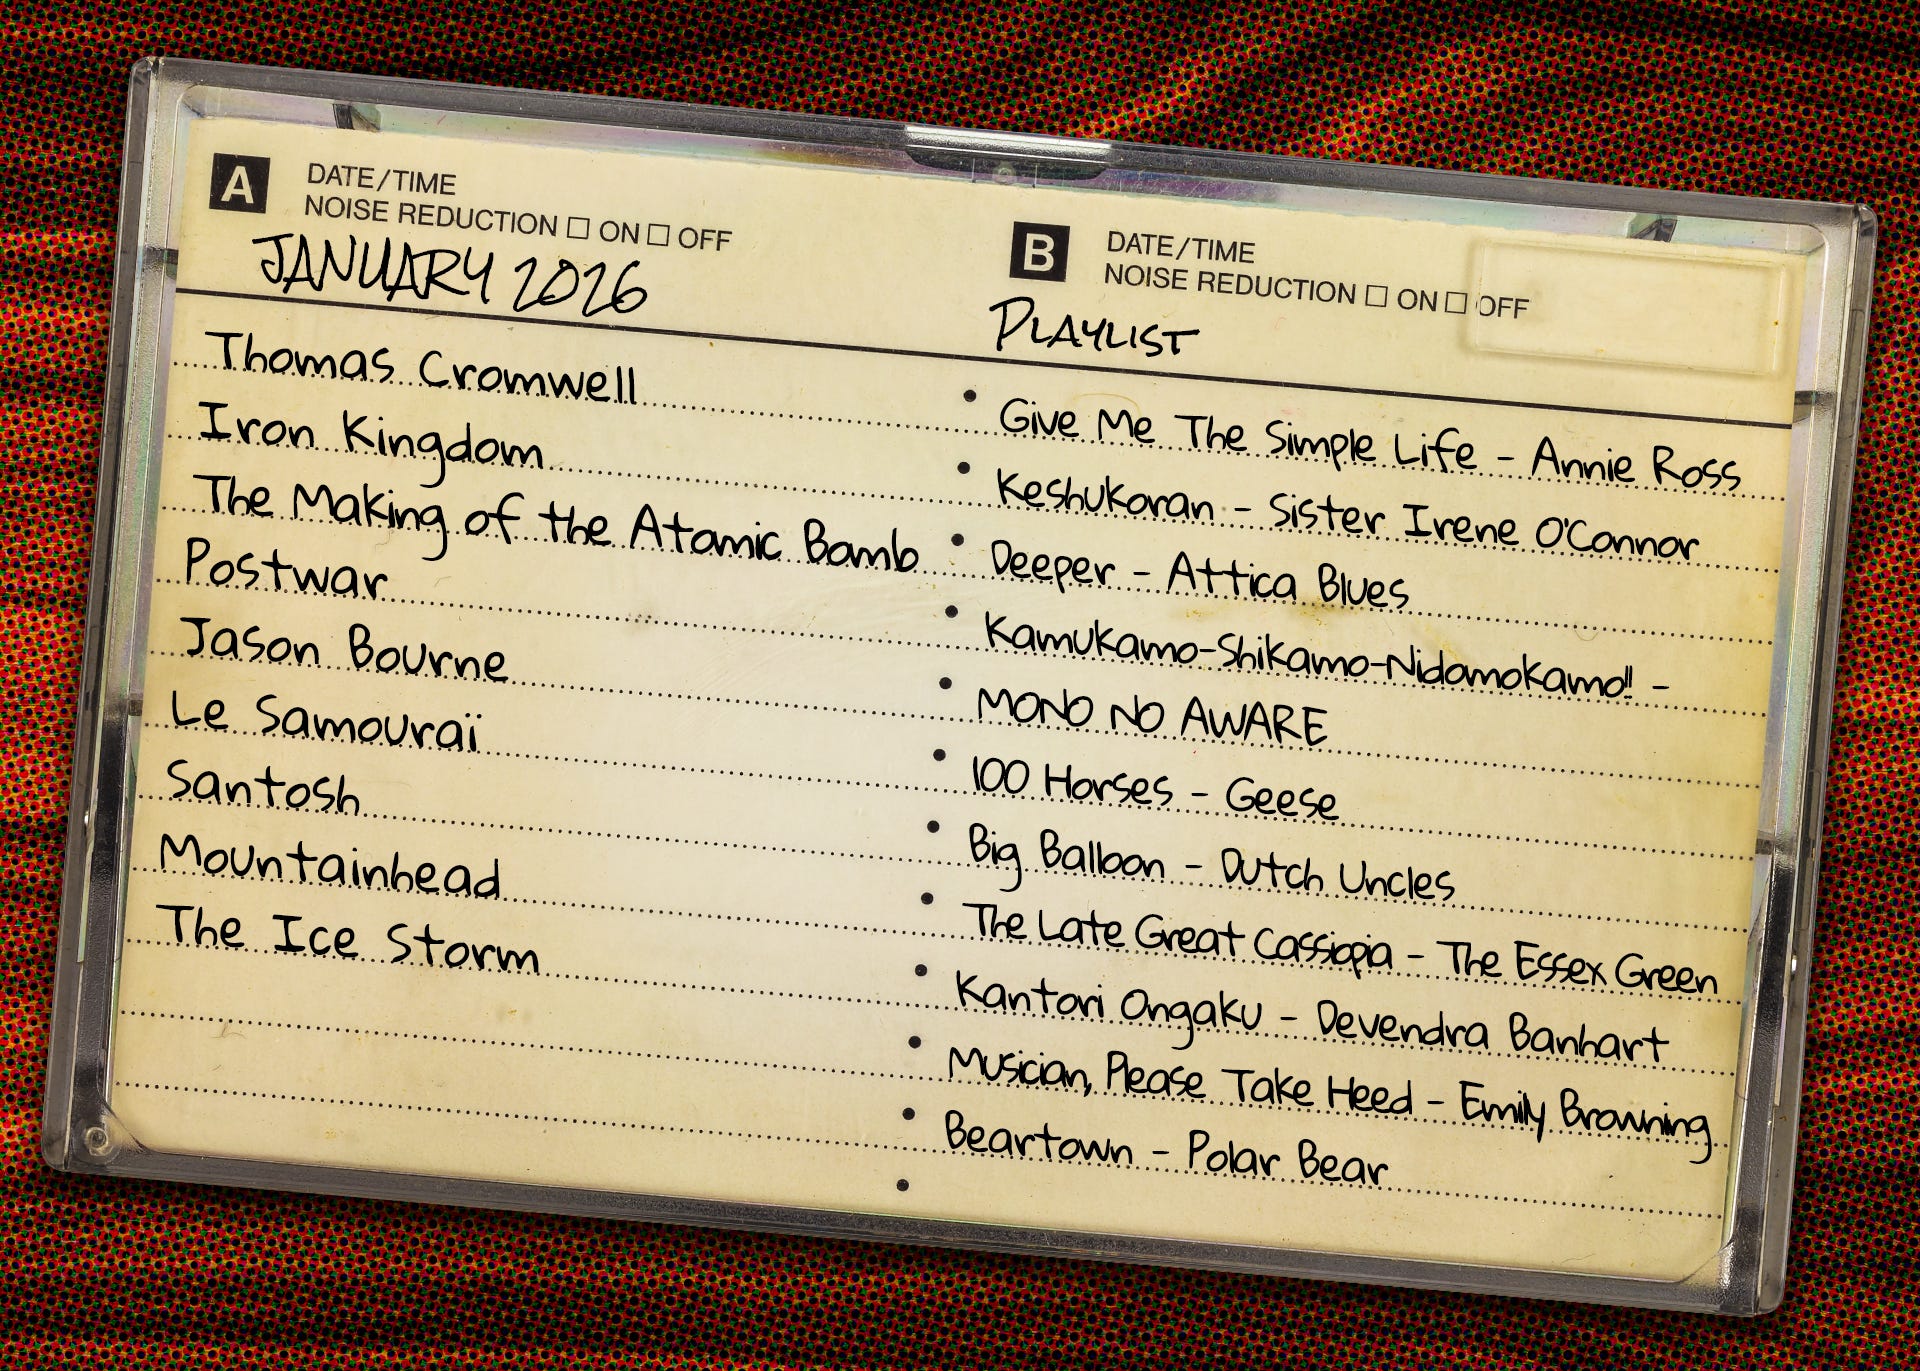 A
DATE/TIME
NOISE REDUCTION ☐ ON ☐ OFF
JANUARY 2026
Thomas Cromwell
Iron Kingdom
The Making of the Atomic Bomb
Postwar
Jason Bourne
Le Samouraï
Santosh
Mountainhead
The Ice Storm
B
DATE/TIME
NOISE REDUCTION ☐ ON ☐ OFF
PLAYLIST
Give Me The Simple Life - Annie Ross
Keshukoran - Sister Irene O'Connor
Deeper - Attica Blues
Kamukamo-Shikamo-Nidomokamo!! -
MONO NO AWARE
100 Horses - Geese
Big Balloon - Dutch Uncles
The Late Great Cassiopia - The Essex Green
Kantori Ongaku - Devendra Banhart
Musician, Please Take Heed - Emily Browning
Beartown - Polar Bear